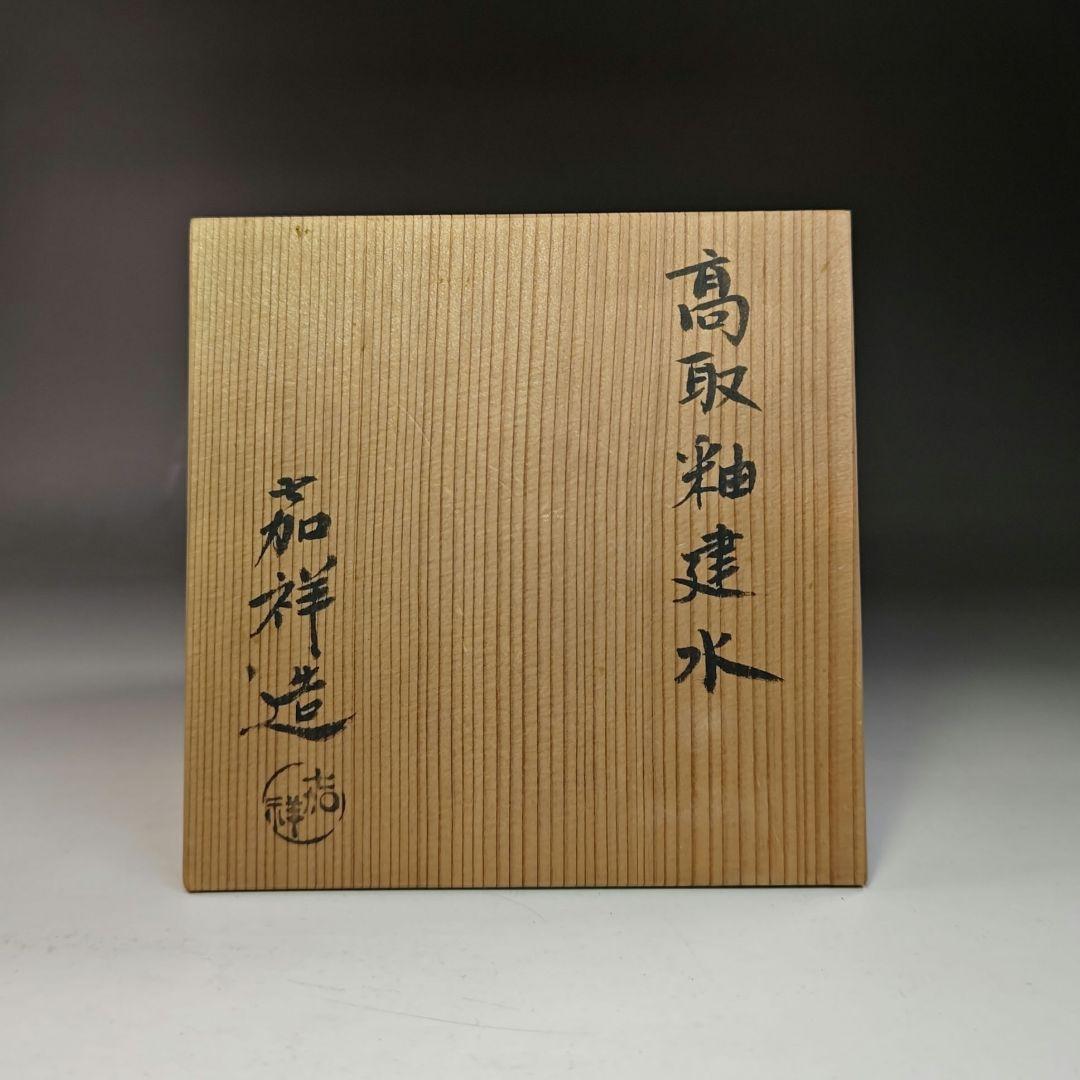 高取釉建水
茄祥造
茄祥